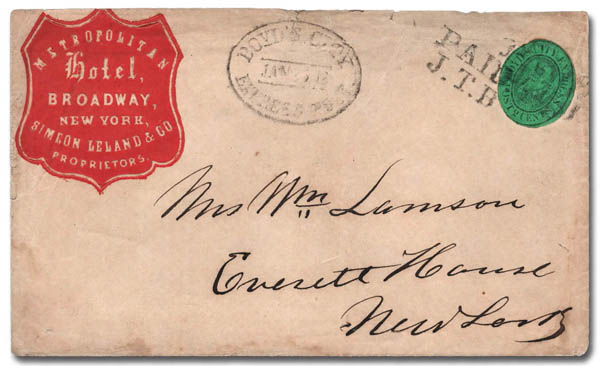 METROPOLITAN
Hotel,
BROADWAY,
NEW YORK,
SIMEON LELAND & CO
PROPRIETORS.
BOYD'S CITY
JAN
EXPRESS POST
PAID
J.T.B
Mrs Wm Lamson
Everett House
New York